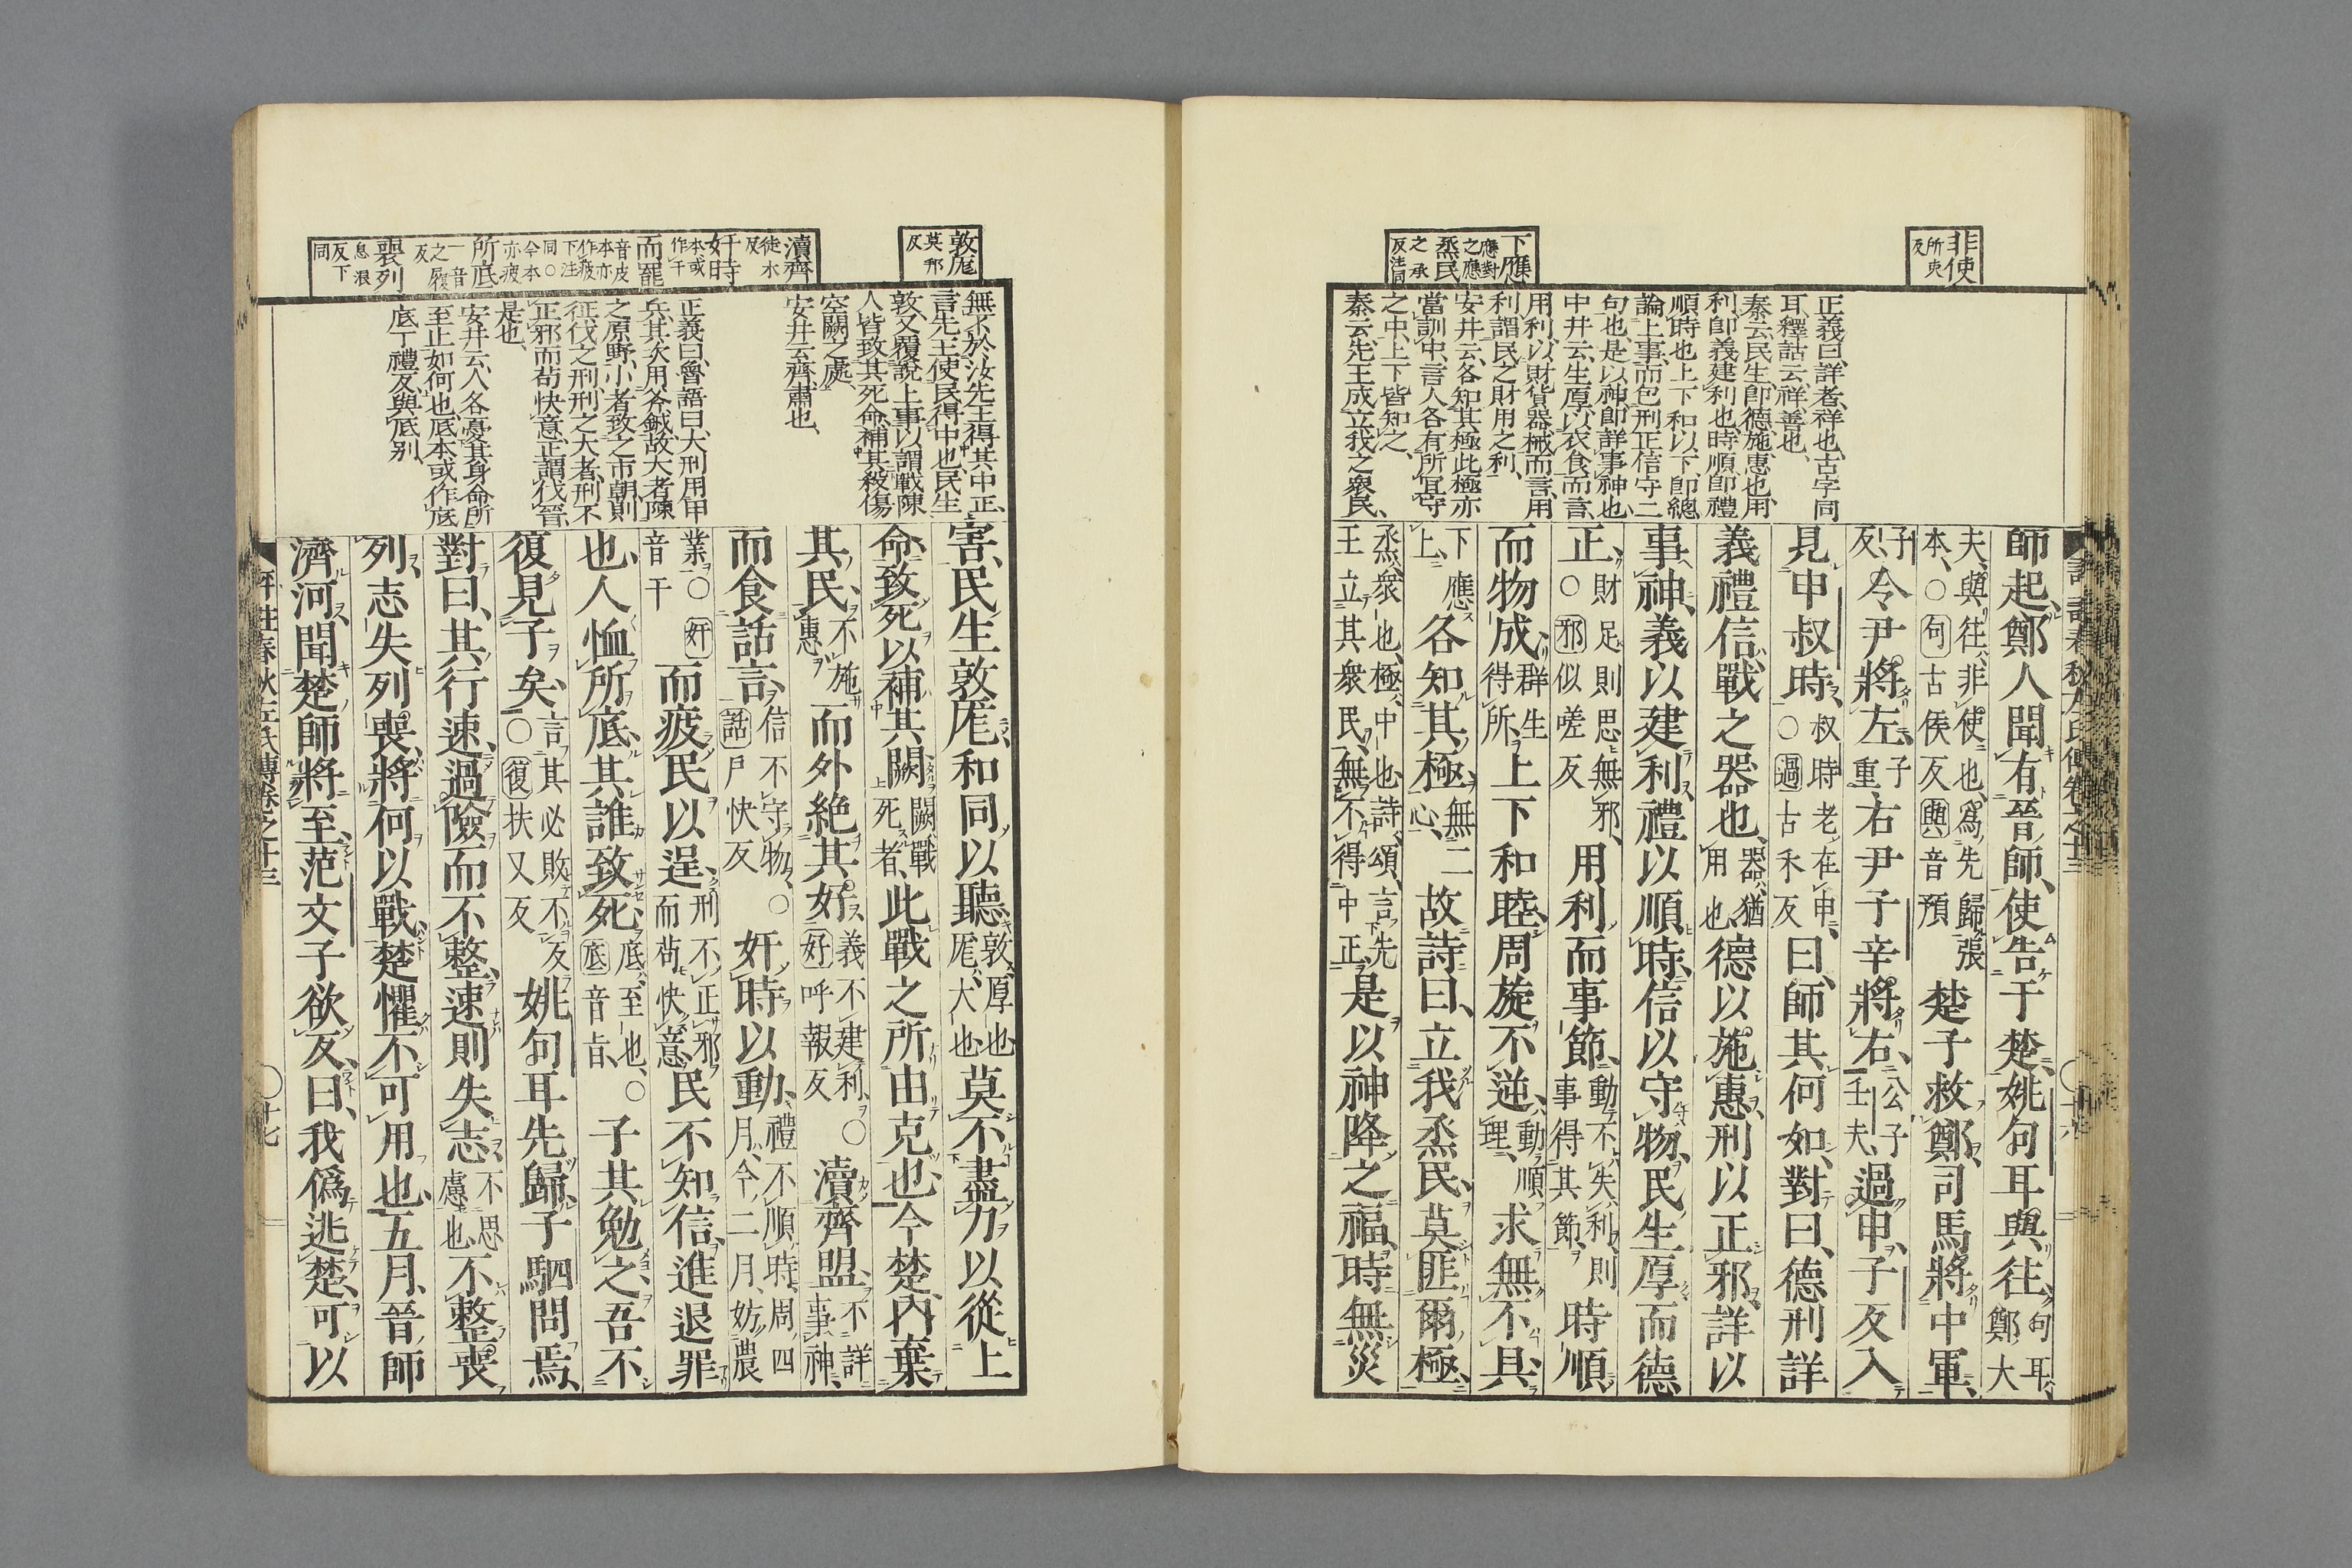 非使所吏反
下應應對之應
烝民之承反注同
正義曰、詳者、祥也、古字同
耳、釋詁云、祥、善也、
秦云、民生卽德、施惠也、用
利卽義建利也、時順卽禮
順時也、上下和以下、卽總
論上事、而包刑正信守二
句也、是以神卽詳事神也
中井云、生厚、以衣食而言、
用利、以財貨器械而言、用
利謂民之財用之利、
安井云、各知其極、此極亦
當訓中、言人各有所宜守
之中、上下皆知之、
秦云、先王成立我之衆民、
師起、鄭人聞有晉師、使告于楚、姚句耳與往、句耳、鄭大
夫、與往、非使也、爲先歸張本、○句古侯反與音預楚子救鄭、司馬將中軍、
子反、令尹將左、子重、右尹子辛將右、公子壬夫、過申、子反入
見申叔時、叔時老在申、○過古禾反曰、師其何如、對曰、德刑詳
義禮信、戰之器也、器、猶用也、德以施惠、刑以正邪、詳以
事神、義以建利、禮以順時、信以守物、民生厚而德
正、財足則思無邪、○邪似嗟反用利而事節、動不失利、則事得其節、時順
而物成、群生得所、上下和睦、周旋不逆、動順理、求無不具、
下應上、各知其極、無二心、故詩曰、立我烝民、莫匪爾極、
烝、衆也、極、中也、詩頌、言先王立其衆民、無不得中正、是以神降之福、時無災
敦厖莫邦反
瀆齊徒木反
奸時本或作干
而罷音皮本亦作疲下注同○今本亦疲
所底一音之履反
喪列息浪反下同
無不於汝先王得其中正、
言先王使民得中也、民生
敦又覆說上事、以謂戰陳
人皆致其死命、補其殺傷
空闕之處、
安井云、齊、肅也、
正義曰、魯語曰、大刑用甲
兵、其次用斧鉞、故大者陳
之原野、小者致之市朝、則
征伐之刑、刑之大者、刑不
正邪而苟快意、正謂伐晉
是也、
安井云、人各憂其身命所
至止如何也、底本或作底
底丁禮反、與厎別、
害、民生敦厖、和同以聽、敦、厚也、厖、大也、莫不盡力以從上
命、致死以補其闕、闕、戰死者、此戰之所由克也、今楚內棄
其民、不施惠、而外絕其好、義不建利、○好呼報反瀆齊盟、不詳事神、
而食話言、信不守物、○話戶快反奸時以動、禮不順時、周四月、今二月、妨農
業、○奸音干而疲民以逞、刑不正邪、而苟快意、民不知信、進退罪
也、人恤所底、其誰致死、底、至也、○底音旨、子其勉之、吾不
復見子矣、言其必敗不反、○復扶又反姚句耳先歸、子駟問焉、
對曰、其行速、過險而不整、速則失志、不思慮也、不整喪
列、志失列喪、將何以戰、楚懼不可用也、五月、晉師
濟河、聞楚師將至、范文子欲反、曰、我僞逃楚、可以
評註春秋左氏傳卷之十三 ○十七